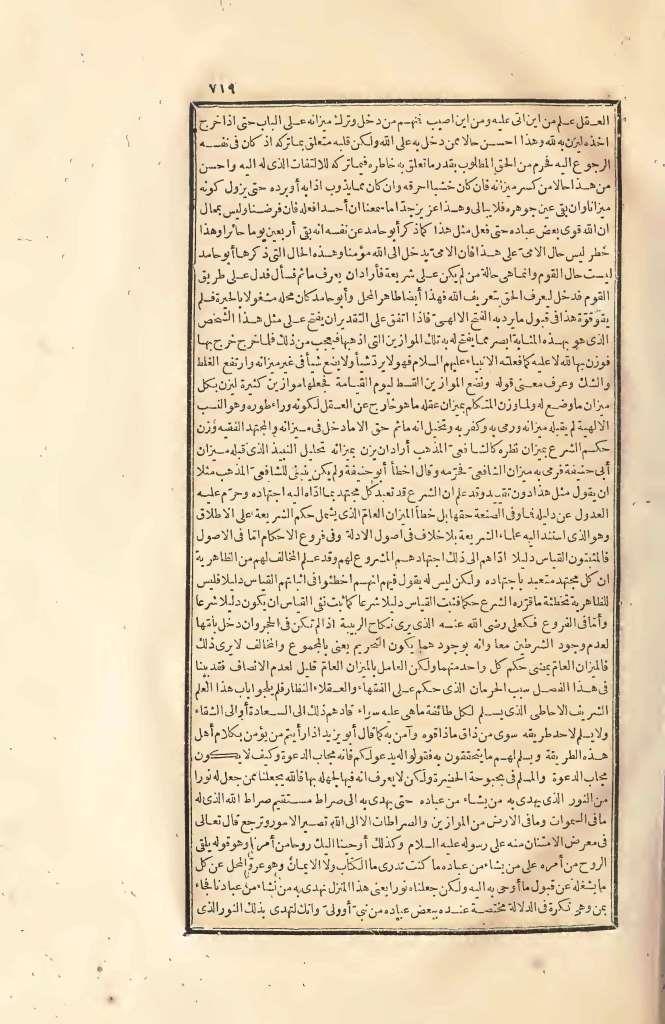 ٧١٩
العقل علم من اين اتى عليه ومن اين اصيب فمنهم من دخل وترك ميزانه على الباب حتى اذا خرج
اخذه ليزن به لله وهذا احسن حالا ممن دخل به على الله ولكن قلبه متعلق بما تركه اذ كان فى نفسه
الرجوع اليه فحرم من الحق المطلوب بقدر ما تعلق به خاطره فيما تركه للالتفات الذى له اليه واحسن
من هذا حالا من كسر ميزانه فان كان خشبا احرقه وان كان مما يذوب اذابه أو برده حتى يزول كونه
ميزانا وان بقى عين جوهره فلا يبالى وهذا عزيز جدا ما سمعنا ان أحدا فعله فان فرضنا وليس بمحال
ان الله قوى بعض عباده حتى فعل مثل هذا كما ذكر أبو حامد عن نفسه انه بقى أربعين يوما حائرا وهذا
خطر ليس حال الامى على هذا فان الامى يدخل الى الله مؤمنا وهذه الحال التى ذكرها أبو حامد
ليست حال القوم وانما هى حالة من لم يكن على شريعة فأراد ان يعرف ما ثم فسأل فدل على طريق
القوم فدخل ليعرف الحق بتعريف الله فهذا أيضا طاهر المحل وأبو حامد كان محله مشغولا بالحيرة فلم
يقو قوة هذا فى قبول ما يرد به الفتح الالهى فاذا اتفق على التقدير ان يفتح على مثل هذا الشخص
الذى هو بهذه المثابة ابصر مما يفتح له به تلك الموازين التى اذهبها فيعجب من ذلك فلما خرج خرج بها
فوزن بها لله لا عليه كما فعلته الانبياء عليهم السلام فهو لا يرد شيأ ولا يضع شيأ فى غير ميزانه وارتفع الغلط
والشك وعرف معنى قوله ونضع الموازين القسط ليوم القيامة فجعلها موازين كثيرة ليزن بكل
ميزان ما وضع له ولما وزن المتكلم بميزان عقله ما هو خارج عن العقل لكونه وراء طوره وهو النسب
الالهية لم يقبله ميزانه ورمى به وكفر به وتخيل انه ما ثم حق الا ما دخل فى ميزانه والمجتهد الفقيه وزن
حكم الشرع بميزان نظره كالشافعى المذهب أراد ان يزن بميزانه تحليل النبيذ الذى قبله ميزان
أبى حنيفة فرمى به ميزان الشافعى فحرمه وقال اخطأ أبو حنيفة ولم يكن ينبغى للشافعى المذهب مثلا
ان يقول مثل هذا دون تقييد وقد علم ان الشرع قد تعبد كل مجتهد بما اداه اليه اجتهاده وحرم عليه
العدول عن دليله فما وفى الصنعة حقها بل خطأ الميزان العام الذى يشمل حكم الشريعة على الاطلاق
وهو الذى استند اليه علماء الشريعة بلا خلاف فى أصول الادلة وفى فروع الاحكام اما فى الاصول
فالمثبتون القياس دليلا اداهم الى ذلك اجتهادهم المشروع لهم وقد علم المخالف لهم من الظاهرية
ان كل مجتهد متعبد باجتهاده ولكن ليس له يقول فيهم انهم اخطئوا فى اثباتهم القياس دليلا فليس
للظاهرية تخطئة ما قرره الشرع حكما فثبت القياس دليلا شرعا كما ثبت نفى القياس ان يكون دليلا شرعا
وأما فى الفروع فكعلى رضى الله عنه الذى يرى نكاح الربيبة اذا لم تكن فى الحجر وان دخل بأمها
لعدم وجود الشرطين معا وانه بوجودهما يكون التحريم يعنى بالمجموع والمخالف لا يرى ذلك
فالميزان العام يمضى حكم كل واحد منهما ولكن العامل بالميزان العام قليل لعدم الانصاف فقد بينا
فى هذا الفصل سبب الحرمان الذى حكم على الفقهاء والعقلاء النظار فلم يلجوا باب هذا العلم
الشريف الاحاطى الذى يسلم لكل طائفة ما هى عليه سواء قادهم ذلك الى السعادة أو الى الشقاء
ولا يسلم لاحد طريقه سوى من ذاق ما ذاقوه وآمن به كما قال أبو يزيد اذا رأيتم من يؤمن بكلام أهل
هذه الطريقة ويسلم لهم ما يتحققون به فقولوا له يدعو لكم فانه مجاب الدعوة وكيف لا يكون
مجاب الدعوة والمسلم فى بحبوحة الحضرة ولكن لا يعرف انه فيها لجهله بها فالله يجعلنا ممن جعل له نورا
من النور الذى يهدى به من يشاء من عباده حتى يهدى به الى صراط مستقيم صراط الله الذى له
ما فى السموات وما فى الارض من الموازين والصراطات الا الى الله تصير الامور وترجع قال تعالى
فى معرض الامتنان منه على رسوله عليه السلام وكذلك أوحينا اليك روحا من أمرنا وهو قوله يلقى
الروح من أمره على من يشاء من عباده ما كنت تدرى ما الكتاب ولا الايمان وهو عرو المحل عن كل
ما يشغله عن قبول ما أوحى به اليه ولكن جعلناه نورا يعنى هذا المنزل نهدى به من نشاء من عبادنا فجاء
بمن وهى نكرة فى الدلالة مختصة عنده ببعض عباده من نبى أو ولى وانك لتهدى بذلك النور الذى